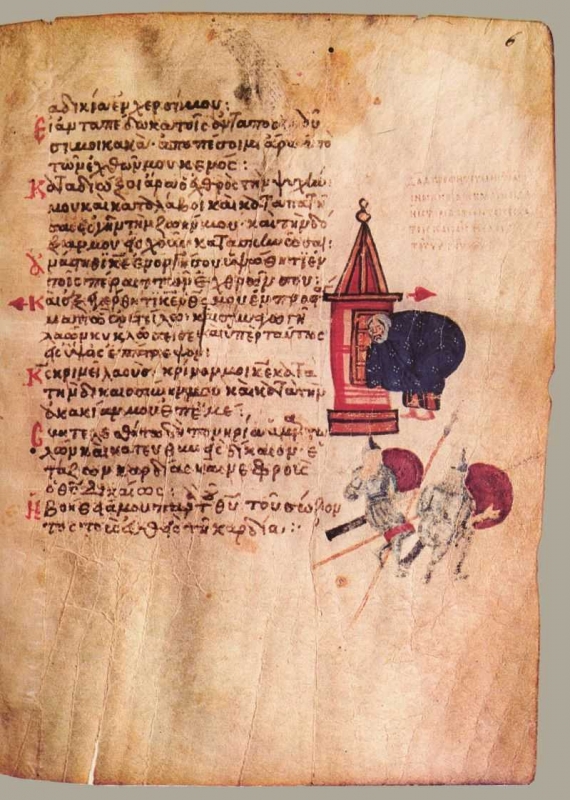 6
αδικία ἐν χερσίμου:
Εἰ ἀνταπέδωκα τοῖς ἀνταποδιδοῦ
σιμοι κακὰ· ἀποπέσοιμι ἄρα ἀπὸ
τῶν ἐχθρῶν μου κενός:
Καταδιώξοι ἄρα ὁ ἐχθρὸς τὴν ψυχήν
μου καὶ καταλάβοι καὶ καταπατή
σαι εἰς γῆν τὴν ζωήν μου· καὶ τὴν δό
ξαν μου εἰς χοῦν κατασκηνώσαι:
Ἀνάστηθι κε ἐν ὀργῆ σου ὑψώθητι ἐν
τοῖς πέρασι τῶν ἐχθρῶν σου:
Καὶ ἐξεγέρθητι κε ὁ θς μου ἐν προστά
ματι ὧ ἐνετείλω· καὶ συναγωγὴ
λαῶν κυκλώσει σε· καὶ ὑπὲρ ταύτης
εἰς ὕψος ἐπίστρεψον:
Κς κρινεῖ λαούς· κρῖνόν με κε κατὰ
τὴν δικαιοσύνην μου καὶ κατὰ τὴν
ἀκακίαν μου ἐπ' ἐμέ:
Συντελεσθήτω δὴ πονηρία ἁμαρτω
λῶν καὶ κατευθυνεῖς δίκαιον· ἐ
τάζων καρδίας καὶ νεφροὺς
ὁ θς δικαίως:
Ἡ βοήθειά μου παρὰ τοῦ θυ τοῦ σώζον
τος τοὺς εὐθεῖς τῆ καρδία: